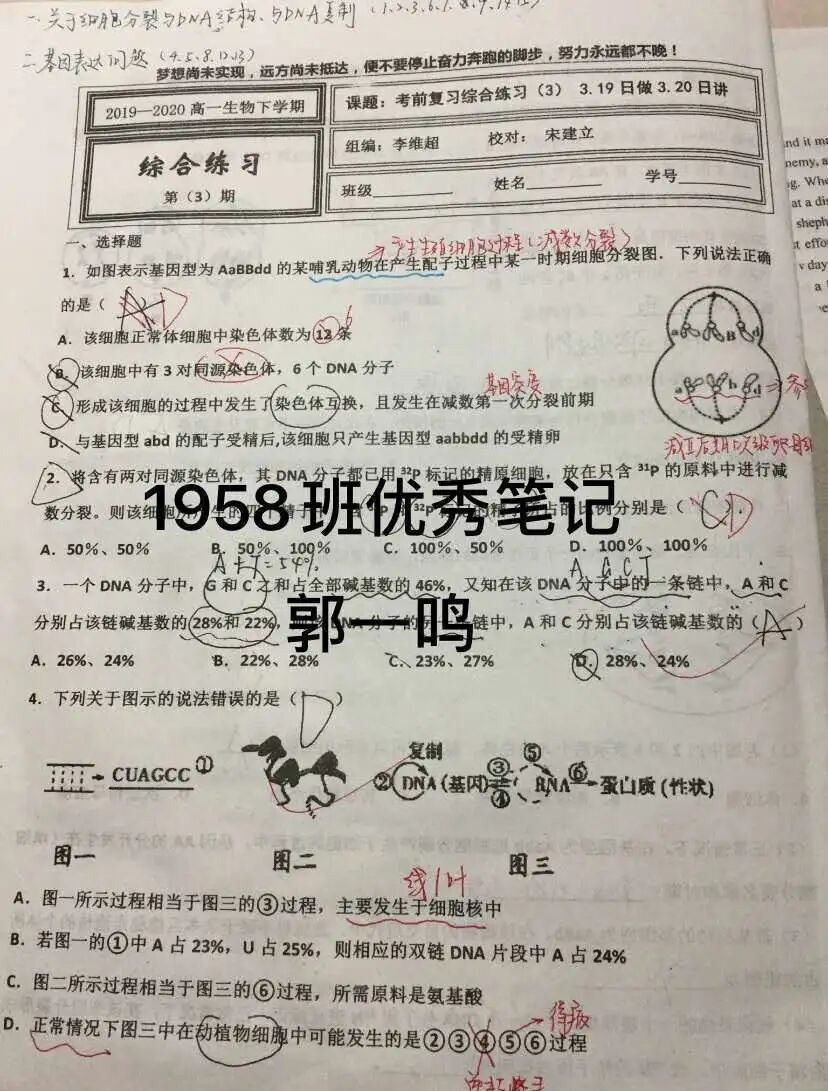 一、关于细胞分裂与DNA结构、与DNA复制
二、基因表达问题 (4.5.8.12.13)
梦想尚未实现，远方尚未抵达，便不要停止奋力奔跑的脚步，努力永远都不晚！
2019—2020 高一生物下学期
课题：考前复习综合练习（3） 3.19日做3.20日讲
综合练习
第（3）期
组编：李维超 校对：宋建立
班级 姓名 学号
一、选择题
→产生生殖细胞过程(减数分裂)
1．如图表示基因型为 AaBBdd 的某哺乳动物在产生配子过程中某一时期细胞分裂图．下列说法正确
的是（ D ）
6
A．该细胞正常体细胞中染色体数为 12 条
B．该细胞中有 3 对同源染色体，6 个 DNA 分子
基因突变
C．形成该细胞的过程中发生了染色体互换，且发生在减数第一次分裂前期
D．与基因型 abd 的配子受精后,该细胞只产生基因型 aabbdd 的受精卵
a B d
a b d
2．将含有两对同源染色体，其 DNA 分子都已用 ³²P 标记的精原细胞，放在只含 ³¹P 的原料中进行减
数分裂。则该细胞所产生的四个精子中，含 ³¹P 和 ³²P 标记的精子所占的比例分别是（ D ）．
1958班优秀笔记
A．50％、50％ B．50％、100％ C．100％、50％ D．100％、100％
A+T=54% A G C T
3．一个 DNA 分子中，G 和 C 之和占全部碱基数的 46%，又知在该 DNA 分子中的一条链中，A 和 C
分别占该链碱基数的 28%和 22%，则该 DNA 分子的另一条链中，A 和 C 分别占该链碱基数的（ A ）
郭一鸣
A．26%、24% B．22%、28% C、23%、27% D．28%、24%
4．下列关于图示的说法错误的是（ D ）
CUAGCC ①
复制 ② DNA (基因) ③ ④ ⑤ RNA ⑥ 蛋白质 (性状)
图一 图二 图三
线 叶
A．图一所示过程相当于图三的③过程，主要发生于细胞核中
B．若图一的①中 A 占 23%，U 占 25%，则相应的双链 DNA 片段中 A 占 24%
C．图二所示过程相当于图三的⑥过程，所需原料是氨基酸
D．正常情况下图三中在动植物细胞中可能发生的是②③④⑤⑥过程